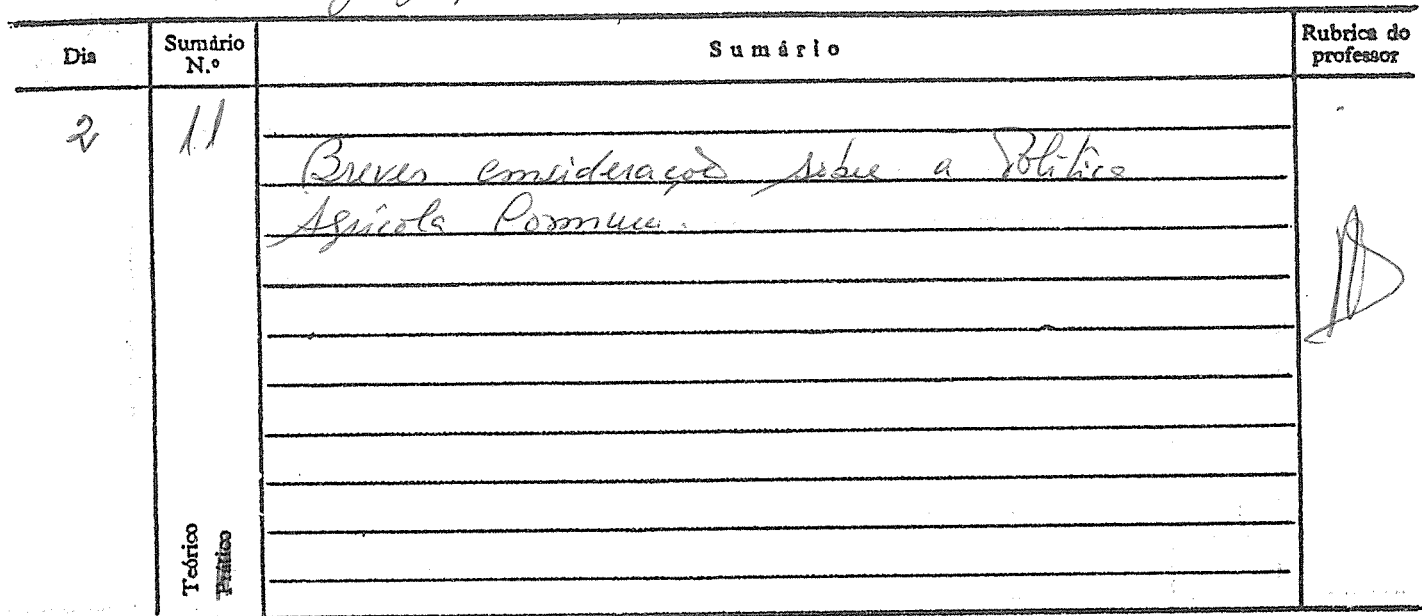 Dia
Sumário N.º
Sumário
Rubrica do professor
2
11
Breves considerações sobre a Política
Agrícola Comum.
Teórico
Prático